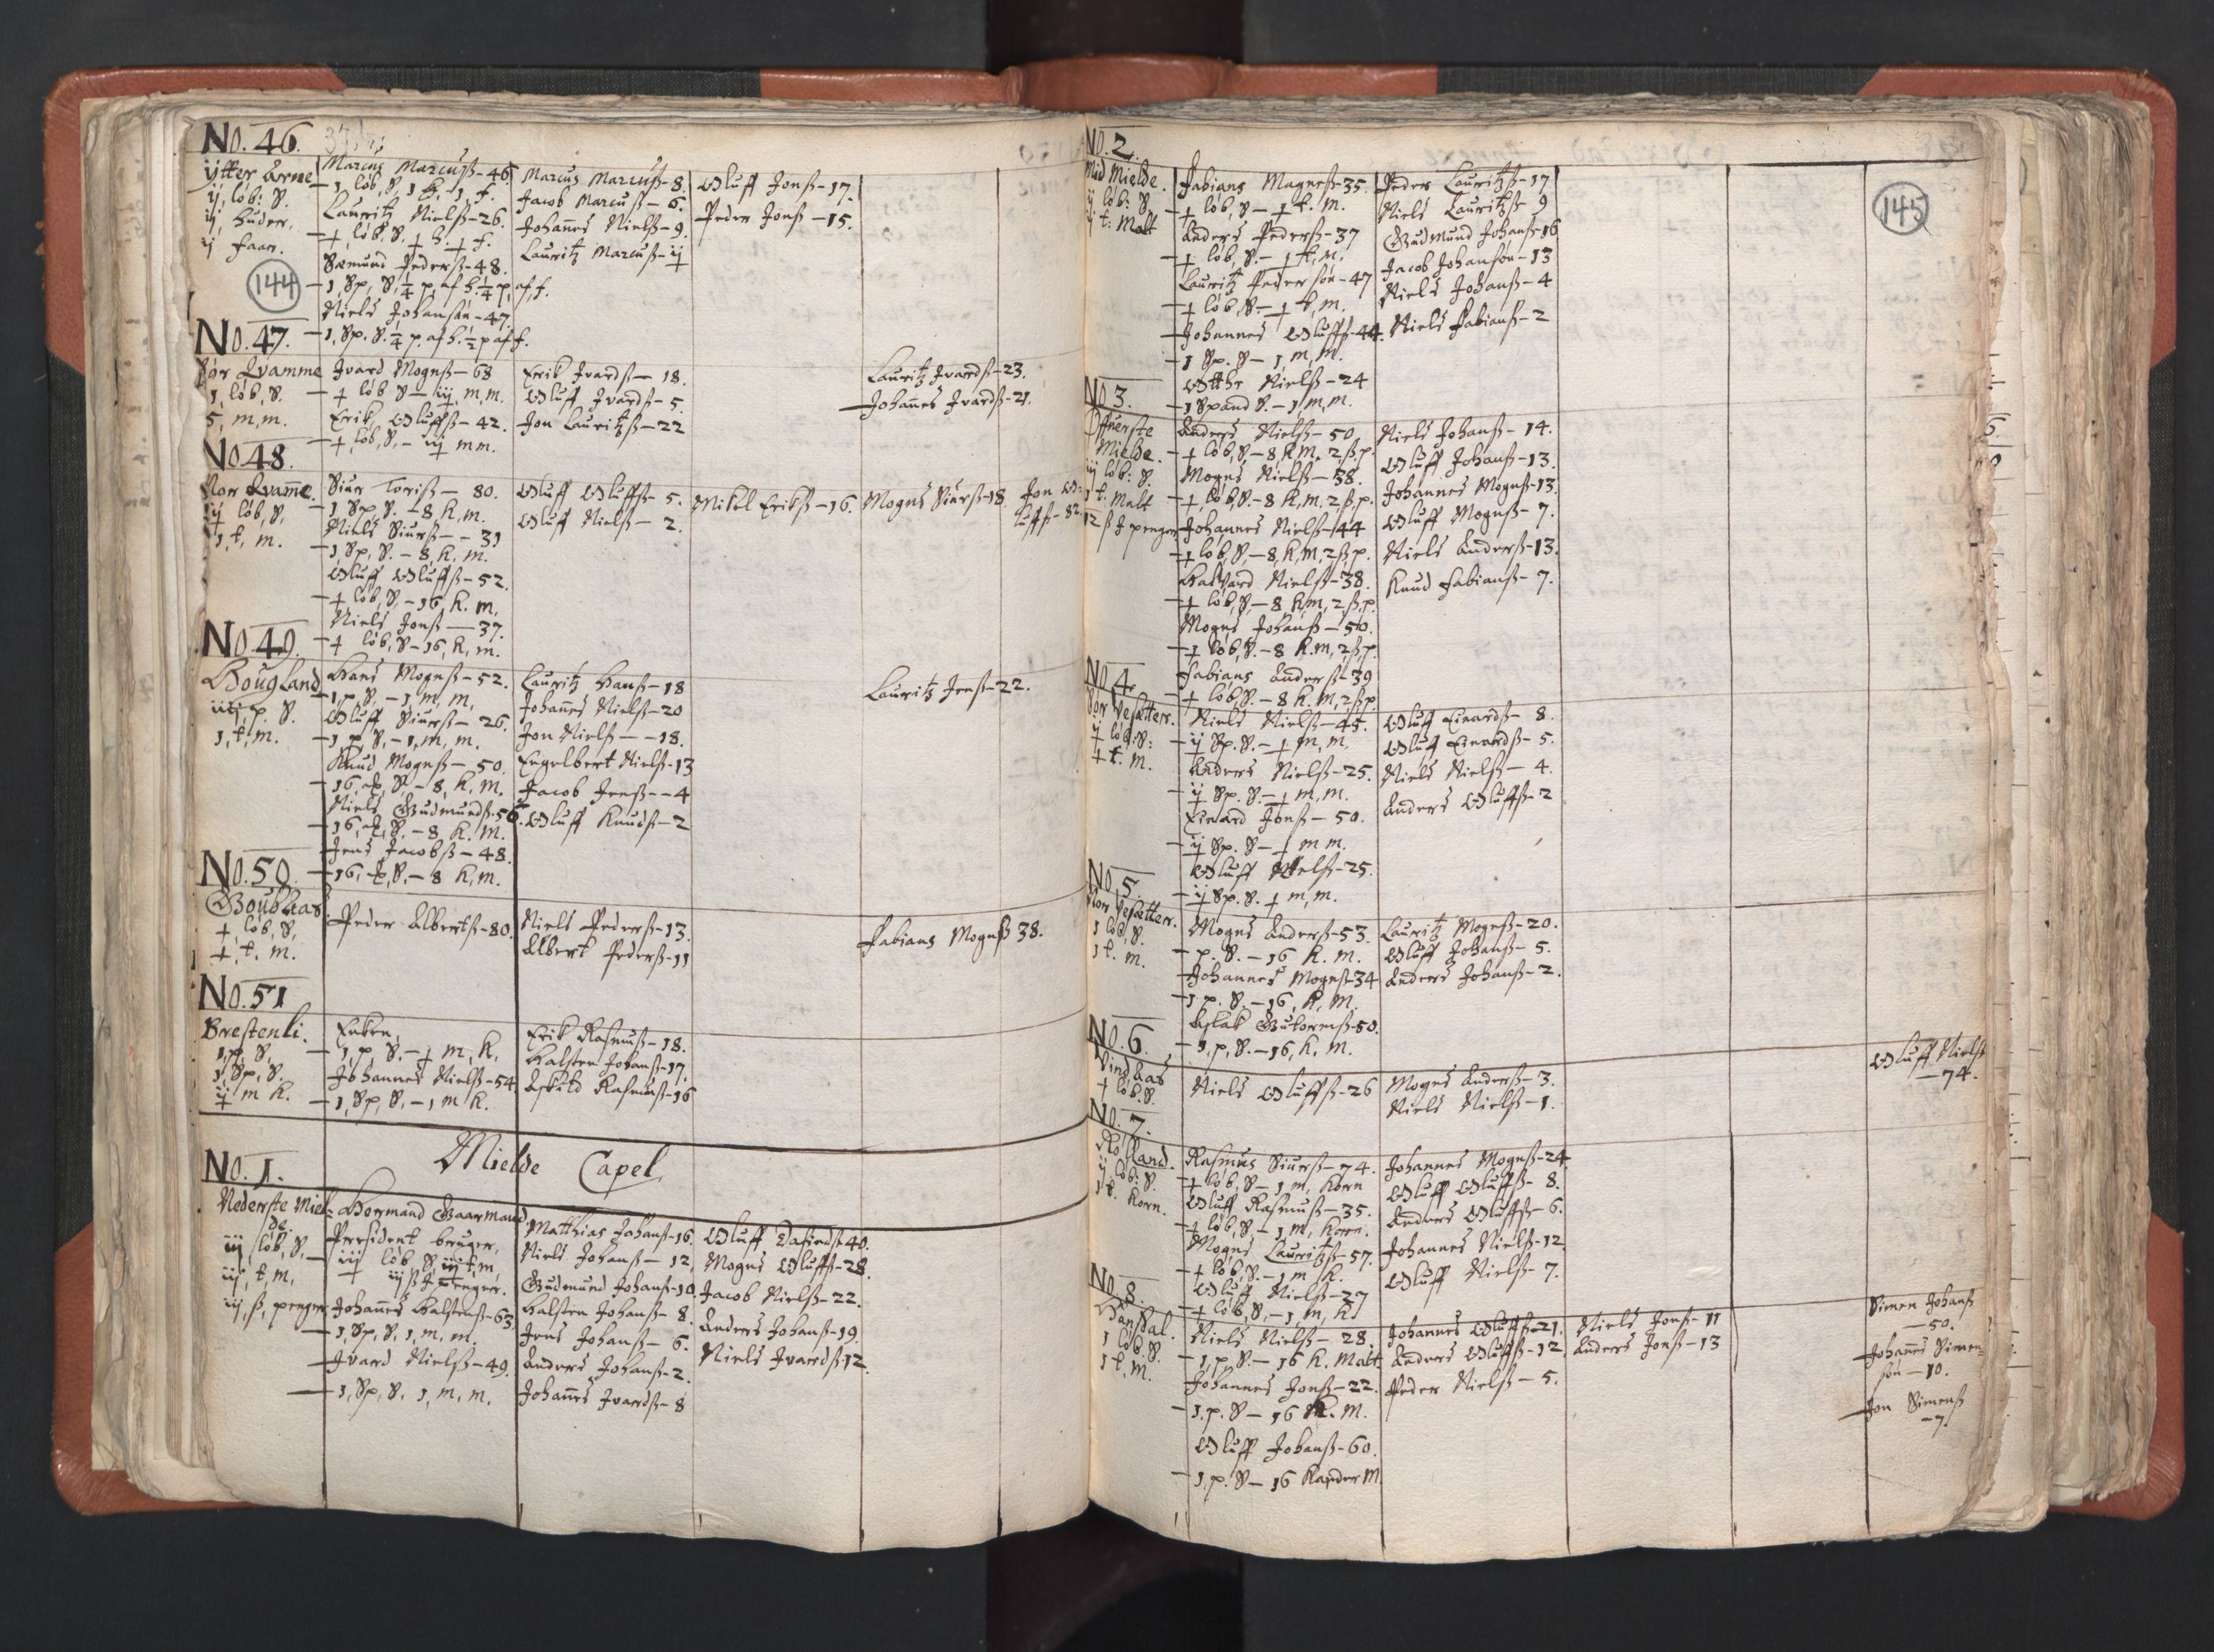 No. 46.
ytter Arne
ij, løb: S.
ij, huder.
ij faar.
144
Marcus Marcusß – 46.
– 1, løb, S, 1 h, 1, f.
Lauritz Nielsß – 26.
– ½, løb, S, ½ h. ½ f.
Sæmund Pedersß – 48.
– 1, Sp, S, ¼ p, af h. ¼ p, af, f.
Niels Johansøn – 47.
– 1, Sp. S. ¼ p. af h. ½ p af f.
Marcus Marcusß – 8.
Jacob Marcusß – 6.
Johanes Nielsß – 9.
Lauritz Marcusß – ij
Oluff Jonsß – 17.
Peder Jonsß – 15.
No. 47.
Sør Qvamme
1, løb, S.
5, m, m.
Jvard Mognsß – 68
– ½ løb S – iij, m, m.
Erik Oluffsß – 42.
– ½ løb, S, – iij m m.
Erik Jvardsß – 18.
Oluff Jvardsß – 5.
Jon Lauritzsß – 22
Lauritz Jvardsß – 23.
Johanes Jvardsß – 21.
No 48.
Nor Qvame.
ij løb, S,
1, t, m.
Siur Torisß – 80.
– 1 Sp, S. – 8 K, m.
Niels Siursß – – 31
– 1 Sp, S. – 8, K, m.
Oluff Oluffsß – 52.
– ½ løb, S, – 16, K. m,
Niels Jonsß – 37.
– ½ løb, S – 16, K, m.
Oluff Oluffsß – 5.
Oluff Nielsß – 2.
Mikel Eriksß – 16.
Mogns Siursß – 18
Jon O=
luffsß – 82.
No 49.
Hougland
iiij, p. S.
1, t, m.
Hans Mognsß – 52.
– 1, p. S, – 1, m, m,
Oluff Siursß – 26.
– 1 p, S, – 1, m, m.
Knud Mognsß – 50.
– 16, S, – 8, K, m.
Niels Gudmundsß – 56.
– 16, S, – 8 K. m.
Jens Jacobsß – 48.
– 16, S, – 8 K, m.
Lauritz Hansß – 18
Johanes Nielsß – 20
Jon Nielsß – – 18.
Engelbert Nielsß – 13
Jacob Jensß – – 4
Oluff Knudsß – 2
Lauritz Jensß – 22.
No. 50.
Gouhaas.
½ løb, S,
½, t. m.
Peder Albertsß – 80.
Niels Pedersß – 13.
Albert Pedersß – 11
Fabians Mognsß 38.
No. 51
Brestenli.
1, p, S,
1, Sp, S.
m K.
Enken,
– 1, p, S. – ½ m, K,
Johannes Nielsß – 54
– 1, Sp, S, – 1, m K.
Erik Rasmusß – 18.
Halsten Johansß – 17.
Askild Rasmusß – 16
Mielde Capel
No. 1.
Nederste Miel=
de.
løb, S,
iij, t, m,
iij, ß, penger
Hormand Gaarmand
President bruger,
løb S, t, m,
iij ß penger.
Johanes Halstensß – 63.
– 1, Sp, S, 1, m, m.
Jvard Nielsß – 49.
– 1, Sp, S, 1, m, m.
Matthias Johansß – 16.
Niels Johansß – 12,
Gudmund Johansß – 10,
Halsten Johansß – 8.
Jens Johansß – 6.
Anders Johansß – 2.
Johanes Jvardsß – 8
Oluff 40.
Mogns Oluffsß – 28.
Jacob Nielsß – 22.
Anders Johansß – 19.
Niels Jvardsß 12
No. 2.
145
Mid Mielde.
ij løb: S,
ij t: Malt
Fabians Magnesß – 35.
– ½ løb, S – ½ t. m.
Anders Pedersß – 37
– ½ løb, S. – ½ t, m,
Lauritz Pedersøn – 47
– ½ løb, S – ½ t, m,
Johannes Oluffsß – 44.
– 1 Sp. S – 1, m, m.
Otthe Nielsß – 24
– 1 Spand S. – 1, m, m.
Peder Lauritzß – 17
Niels Lauritzß 9
Gudmund Johansß – 16
Jacob Johansøn – 13
Niels Johansß – 4
Niels Fabiansß – 2
No 3.
Øfuerste
Mielde.
iij løb: S.
1 t. Malt
12 ß penger
Anders Nielsß – 50,
– ½ løb, S – 8 K m, 2 ß, p.
Mogns Nielsß – 38.
– ½ løb, S – 8 K, m. 2 ß, p.
Johannes Nielsß – 44
– ½ løb, S – 8, K, m, 2 ß, p.
Halvard Nielsß – 38.
– ½ løb, S, – 8 K, m, 2, ß, p.
Mogns Johansß – 50.
– ½ løb, S. – 8 K. m, 2 ß, p.
Fabians Andersß – 39
– ½ løb, S. – 8 K. m, 2 ß p.
Niels Johansß – 14.
Oluff Johansß – 13.
Johannes Mognsß – 13.
Oluff Mognsß – 7.
Niels Andersß – 13.
Knud Fabiansß – 7.
No 4.
Sør Vesetter.
ij løb, S:
½ t. m.
Niels Nielsß – 45.
– ij Sp. S. – ½ m, m,
Anders Nielsß – 25.
– ij Sp. S. – ½ m, m.
Einard Jonsß – 50.
– ij Sp. S – ½ m m.
Oluff Nielsß – 25.
– ij Sp. S. ½ m, m.
Oluff Einardsß – 8.
Oluff Einardsß – 5.
Niels Nielsß – 4.
Anders Oluffsß – 2
No. 5.
Nor Vesetter.
1 løb, S.
1 t. m.
Mogns Andersß – 53.
– p. S. – 16 K. m.
Johannes Mognsß – 34
– 1 p. S. – 16, K, M.
Aslak Gutormsß – 50.
– 1, p, S. – 16, K. m.
Lauritz Mognsß – 20.
Oluff Johansß – 5.
Anders Johansß – 2.
No. 6.
Vindaas
½ løb. S.
Niels Oluffsß – 26
Mogns Andersß – 3.
Niels Nielsß – 1.
Oluff Nielsß
– 74.
No. 7.
Rolland.
ij løb: S.
1 t. Korn.
Rasmus Siursß – 74.
– ½ løb, S – 1 m, Korn
Oluff Rasmusß – 35.
– ½ løb, S – 1, m, Korn.
Mogns Lauritzß – 57.
– ½ løb, S. – 1, m K.
Oluff Nielsß – 27
– ½ løb, S, – 1, m, K
Johannes Mognsß – 24
Oluff Oluffsß – 8.
Anders Oluffsß – 6.
Johannes Nielsß – 12
Oluff Nielsß – 7.
No. 8.
Handal.
1 løb. S.
1 t, m.
Niels Nielsß – 28.
– 1, p, S. – 16 K. Malt
Johannes Jonsß – 22.
– 1. p. S – 16 K. M.
Oluff Johansß – 60.
– 1. p. S – 16 Kander M.
Johannes Oluffsß – 21.
Anders Oluffsß – 12
Peder Nielsß – 5.
Niels Jonsß – 11
Anders Jonsß – 13
Simen Johansß
– 50.
Johanes Simen=
søn – 10.
Jon Simensß
– 7.